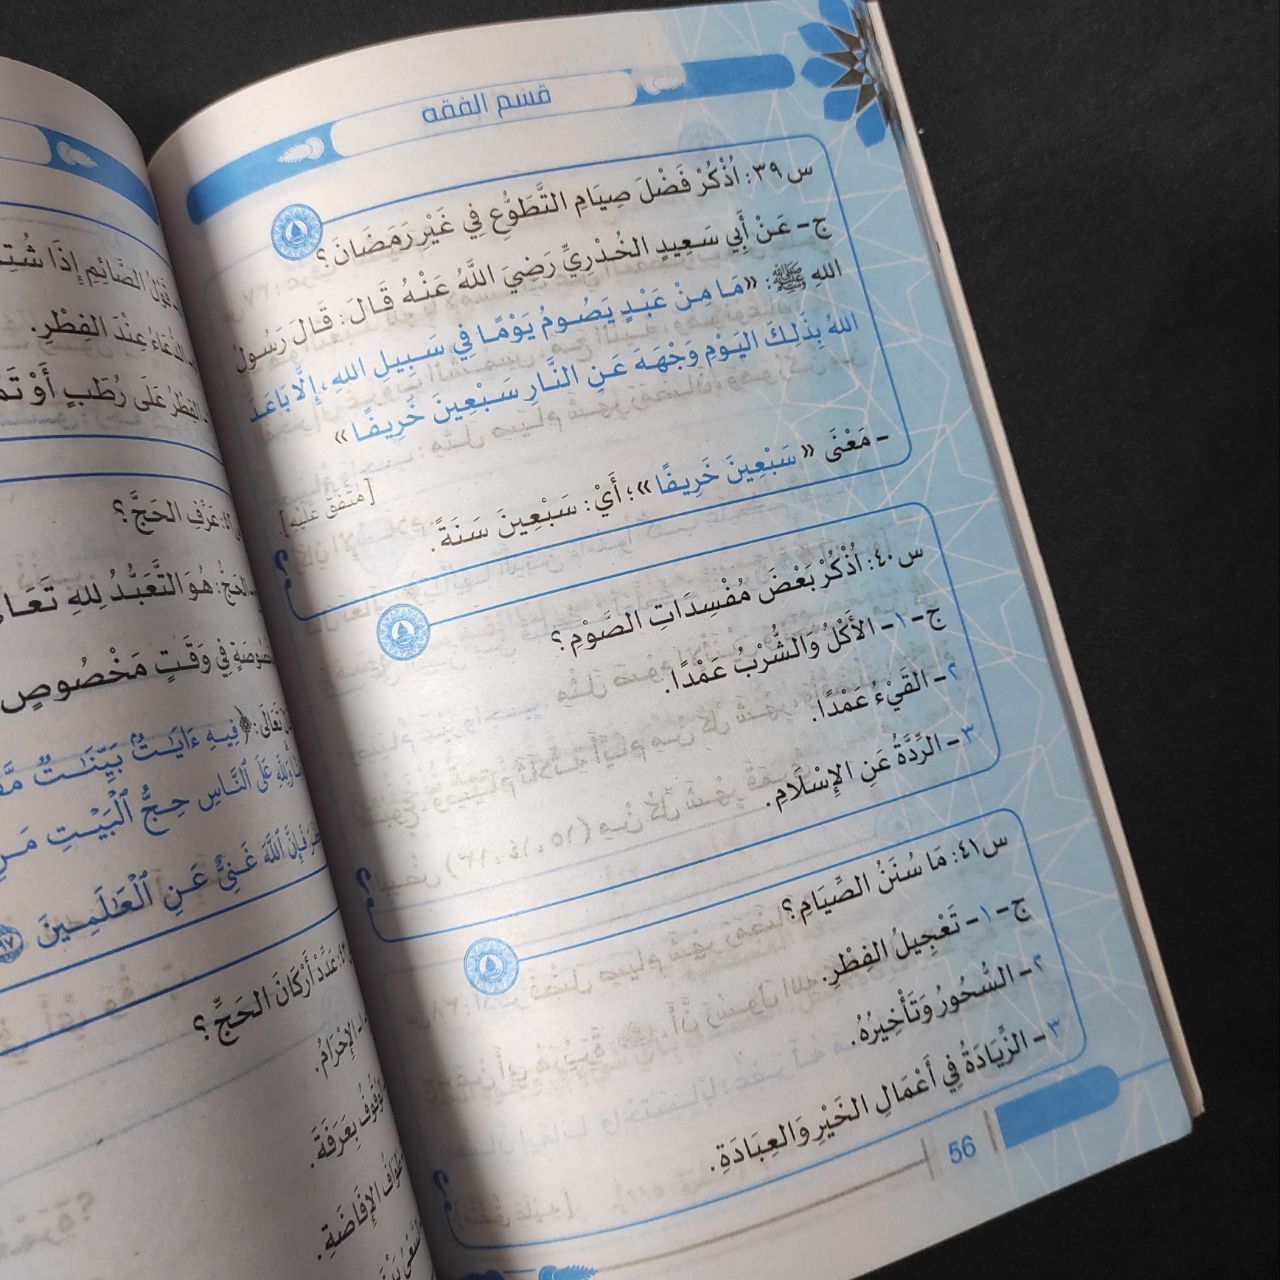 قسم الفقه
س٣٩: اُذْكُرْ فَضْلَ صِيَامِ التَّطَوُّعِ فِي غَيْرِ رَمَضَانَ؟
ج- عَنْ أَبِي سَعِيدٍ الخُدْرِيِّ رَضِيَ اللَّهُ عَنْهُ قَالَ: قَالَ رَسُولُ
اللهِ ﷺ: «مَا مِنْ عَبْدٍ يَصُومُ يَوْمًا فِي سَبِيلِ اللهِ، إِلَّا بَاعَدَ
اللهُ بِذَلِكَ اليَوْمِ وَجْهَهُ عَنِ النَّارِ سَبْعِينَ خَرِيفًا»
[متفق عليه].
- مَعْنَى «سَبْعِينَ خَرِيفًا»؛ أَيْ: سَبْعِينَ سَنَةً.
س٤٠: اُذْكُرْ بَعْضَ مُفْسِدَاتِ الصَّوْمِ؟
ج- ١- الأَكْلُ وَالشُّرْبُ عَمْدًا.
٢- القَيْءُ عَمْدًا.
٣- الرِّدَّةُ عَنِ الإِسْلَامِ.
س٤١: مَا سُنَنُ الصِّيَامِ؟
ج- ١- تَعْجِيلُ الفِطْرِ.
٢- السُّحُورُ وَتَأْخِيرُهُ.
٣- الزِّيَادَةُ فِي أَعْمَالِ الخَيْرِ وَالعِبَادَةِ.
56
قَوْلُ الصَّائِمِ إِذَا شُتِمَ
الدُّعَاءُ عِنْدَ الفِطْرِ.
الفِطْرُ عَلَى رُطَبٍ أَوْ
عَرِّفِ الحَجَّ؟
الحَجُّ: هُوَ التَّعَبُّدُ لِلهِ
فِي وَقْتٍ مَخْصُوصٍ
﴿فِيهِ ءَايَٰتُۢ بَيِّنَٰتٞ
وَلِلَّهِ عَلَى ٱلنَّاسِ حِجُّ ٱلْبَيْتِ
فَإِنَّ ٱللَّهَ غَنِيٌّ عَنِ ٱلْعَٰلَمِينَ
عَدِّدْ أَرْكَانَ الحَجِّ؟
الإِحْرَامُ.
الوُقُوفُ بِعَرَفَةَ.
طَوَافُ الإِفَاضَةِ.